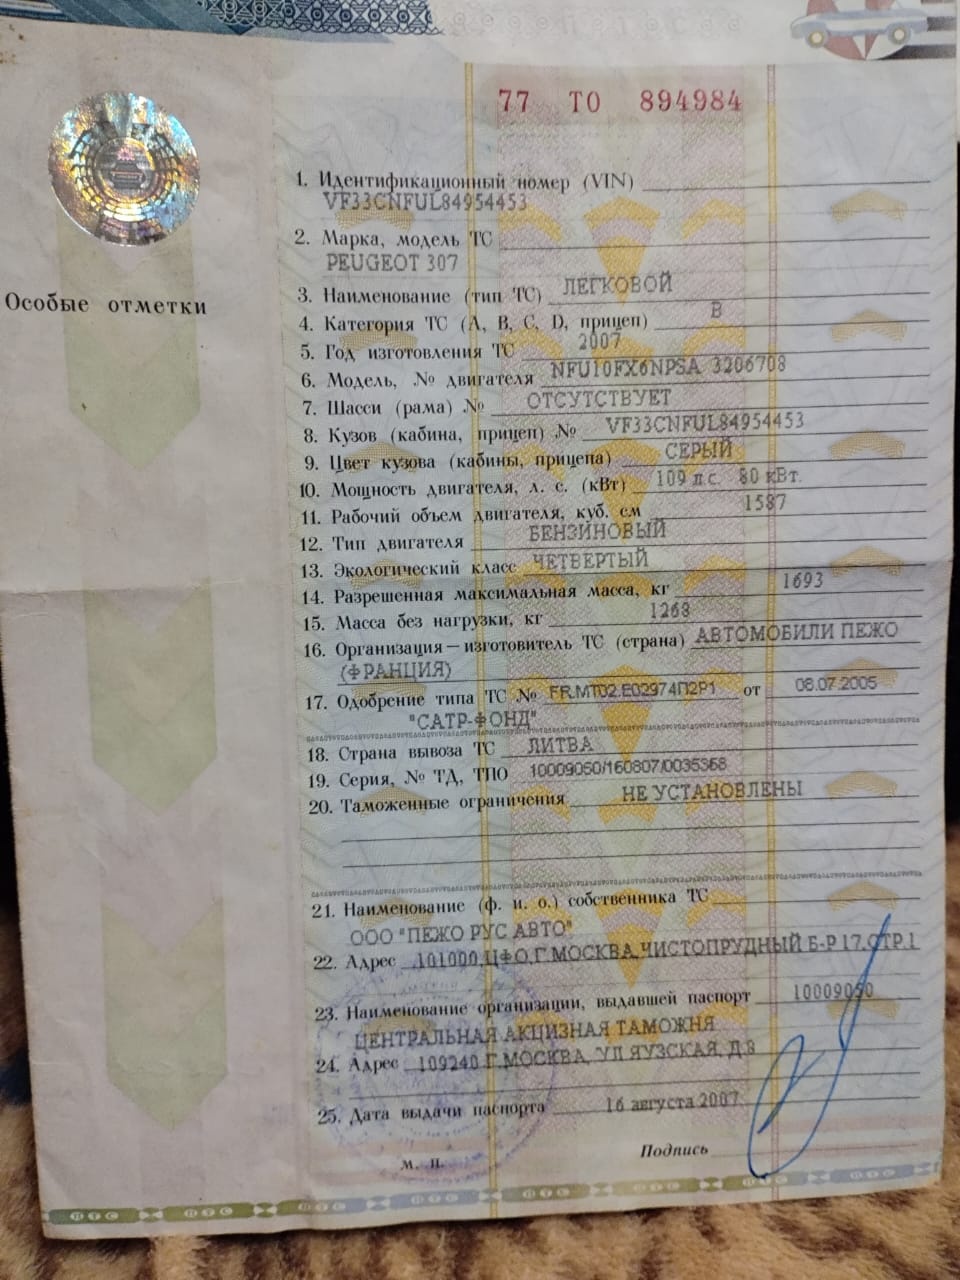 77 ТО 894984
Особые отметки
1. Идентификационный номер (VIN)
VF33CNFUL84954453
2. Марка, модель ТС
PEUGEOT 307
3. Наименование (тип ТС) ЛЕГКОВОЙ
4. Категория ТС (А, В, С, D, прицеп) В
5. Год изготовления ТС 2007
6. Модель, № двигателя NFU10FX6NPSA 3206708
7. Шасси (рама) № ОТСУТСТВУЕТ
8. Кузов (кабина, прицеп) № VF33CNFUL84954453
9. Цвет кузова (кабины, прицепа) СЕРЫЙ
10. Мощность двигателя, л. с. (кВт) 109 л.с. 80 кВт.
11. Рабочий объем двигателя, куб. см 1587
12. Тип двигателя БЕНЗИНОВЫЙ
13. Экологический класс ЧЕТВЕРТЫЙ
14. Разрешенная максимальная масса, кг 1693
15. Масса без нагрузки, кг 1268
16. Организация—изготовитель ТС (страна) АВТОМОБИЛИ ПЕЖО
(ФРАНЦИЯ)
17. Одобрение типа ТС № FR.MT02.E02974П2Р1 от 08.07.2005
"САТР-ФОНД"
18. Страна вывоза ТС ЛИТВА
19. Серия, № ТД, ТПО 10009050/160807/0035368
20. Таможенные ограничения НЕ УСТАНОВЛЕНЫ
21. Наименование (ф. и. о.) собственника ТС
ООО "ПЕЖО РУС АВТО"
22. Адрес 101000,ЦФО,Г.МОСКВА,ЧИСТОПРУДНЫЙ Б-Р 17,СТР.1
23. Наименование организации, выдавшей паспорт 10009050
ЦЕНТРАЛЬНАЯ АКЦИЗНАЯ ТАМОЖНЯ
24. Адрес 109240 Г.МОСКВА, УЛ ЯУЗСКАЯ, Д.8
25. Дата выдачи паспорта 16 августа 2007
М. П. Подпись
ПТС ПТС ПТС ПТС ПТС ПТС ПТС ПТС